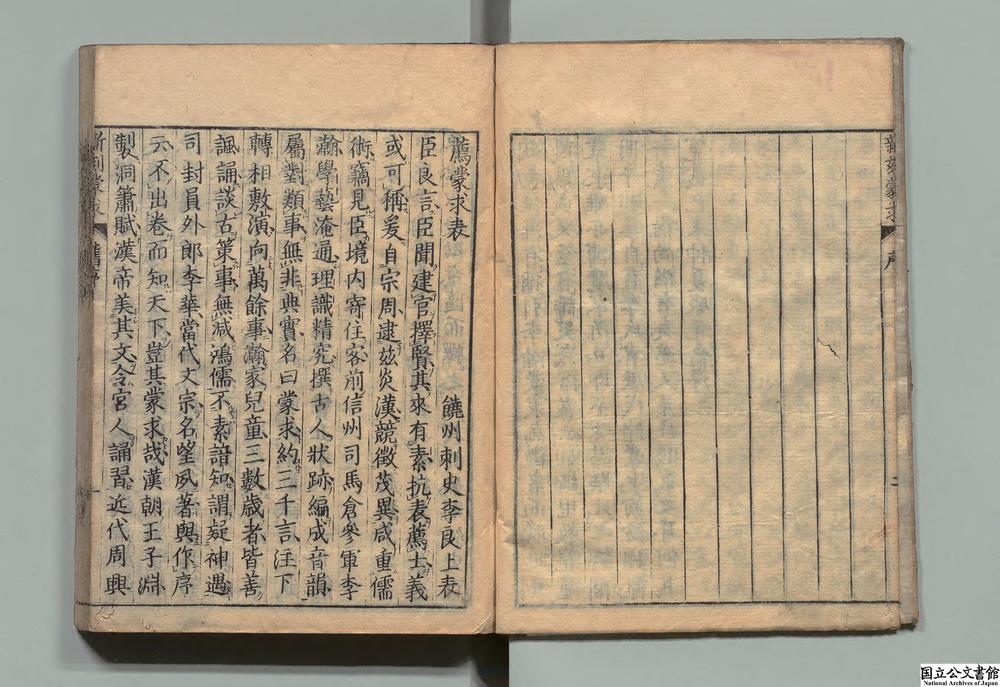 新刻蒙求
序
二
薦蒙求表
饒州刺史李良上表
臣良言臣聞建官擇賢其來有素抗表薦士義
或可稱爰自宗周逮玆炎漢競徴茂異咸重儒
術竊見臣境内寄住客前信州司馬倉參軍李
瀚學藝淹通理識精究撰古人狀跡編成音韻
屬對類事無非典實名曰蒙求約三千言注下
轉相敷演向萬餘事瀚家兒童三數歲者皆善
諷誦談古策事無減鴻儒不素諳知謂疑神遇
司封員外郎李華當代文宗名望夙著與作序
云不出卷而知天下豈其蒙求哉漢朝王子淵
製洞簫賦漢帝美其文令宮人誦習近代周興
新刻蒙求
舊序
一
国立公文書館
National Archives of Japan